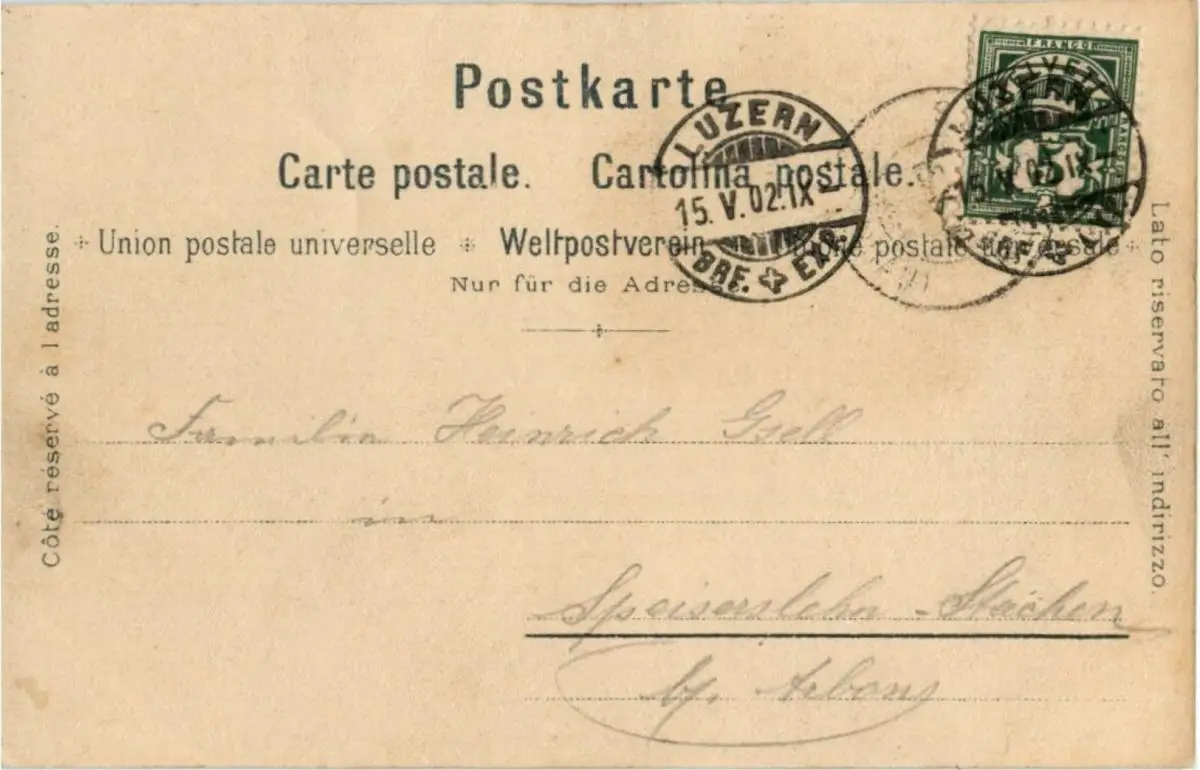 Postkarte
Carte postale. Cartolina postale.
Union postale universelle * Weltpostverein * postale universale
Nur für die Adresse.
Côté réservé à l'adresse.
Lato riservato all' indirizzo.
LUZERN
15.V.02.IX-
BRF. EXP.
FRANCO
HELVETIA
5
LUZERN
15.V.02.IX
BRF.
Familie Heinrich Gsell
in
Speiserslehn - Stachen
b/. Arbon